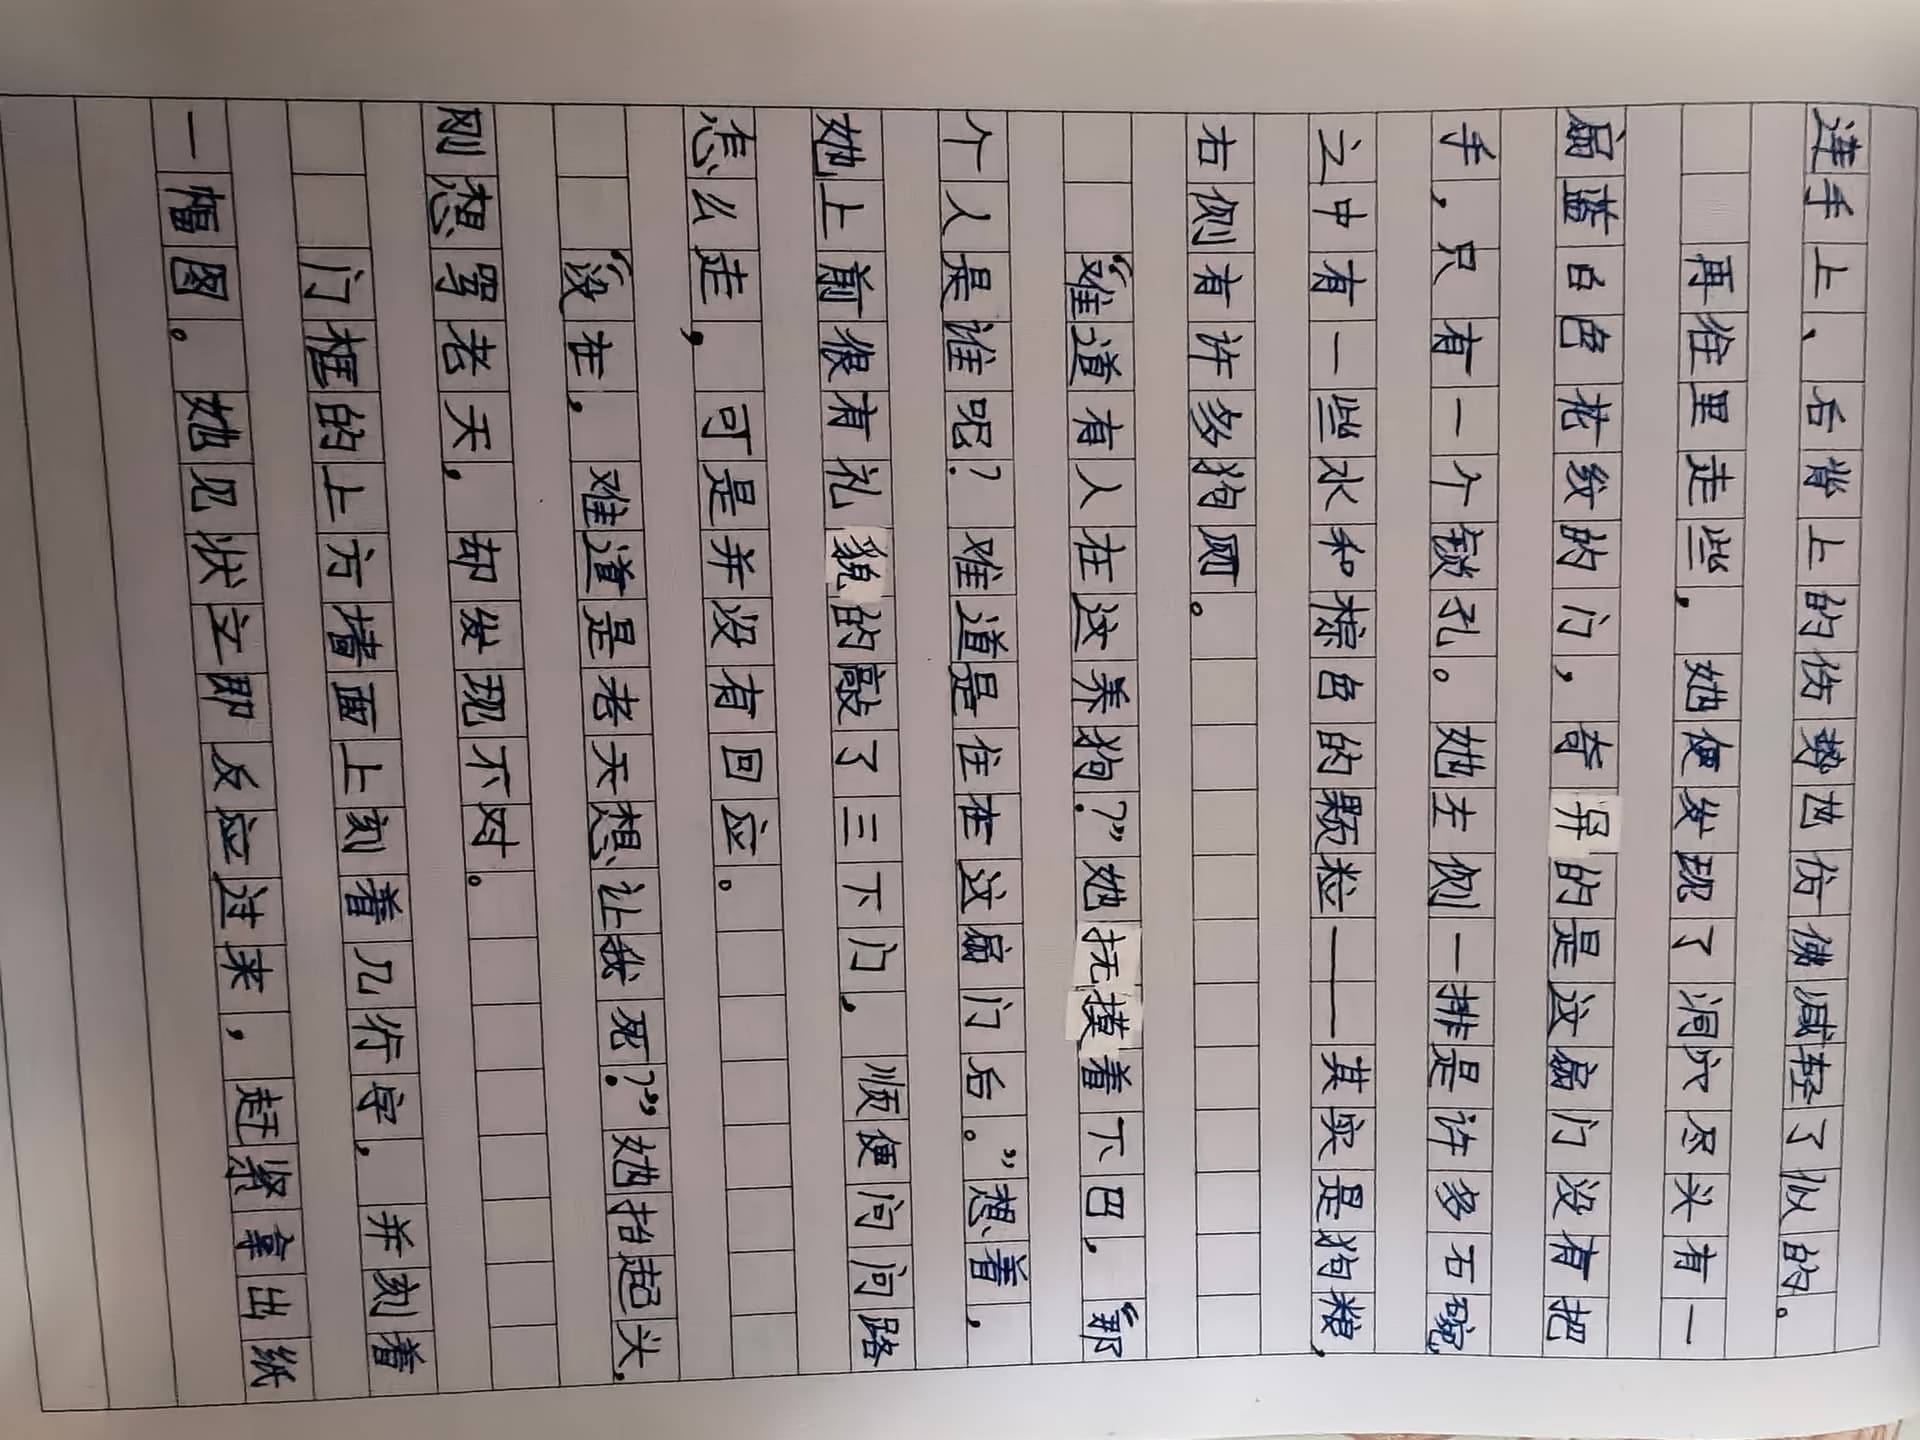 连手上、后背上的伤势也仿佛减轻了似的。
再往里走些，她便发现了洞穴尽头有一
扇蓝白色花纹的门，奇异的是这扇门没有把
手，只有一个锁孔。她左侧一排是许多石碗，
之中有一些水和棕色的颗粒——其实是狗粮，
右侧有许多狗厕。
“难道有人在这养狗？”她抚摸着下巴，“那
个人是谁呢？难道是住在这扇门后。”想着，
她上前很有礼貌的敲了三下门，顺便问问路
怎么走，可是并没有回应。
“没在，难道是老天想让我死？”她抬起头，
刚想骂老天，却发现不对。
门框的上方墙面上刻着几行字，并刻着
一幅图。她见状立即反应过来，赶紧拿出纸